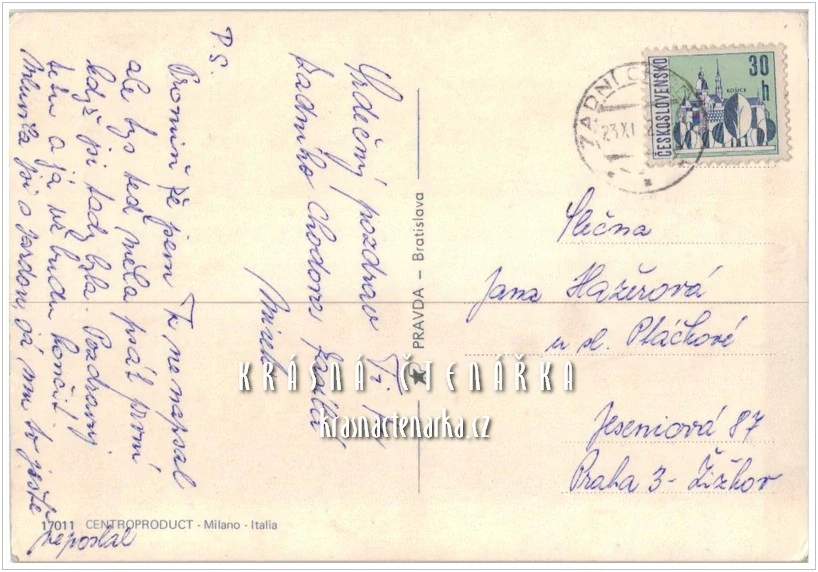 P.S.
Promiň že jsem Ti nenapsal
ale bys teď měla psát první
když jsi tady byla. Pozdravuj
tetu a já už budu končit.
Mluvila jsi o jardovi, já mu to ještě
neposlal
Srdečný pozdrav Ti
ze Zadního Chodova zasílá
Mirek
PRAVDA – Bratislava
ČESKOSLOVENSKO
30
h
KOŠICE
ZADNÍ CH
23.XI
Slečna
Jana Hažerová
u sl. Ptáčkové
Jeseniová 87
Praha 3 - Žižkov
KRÁSNÁ ČTENÁŘKA
krasnactenarka.cz
17011 CENTROPRODUCT - Milano - Italia